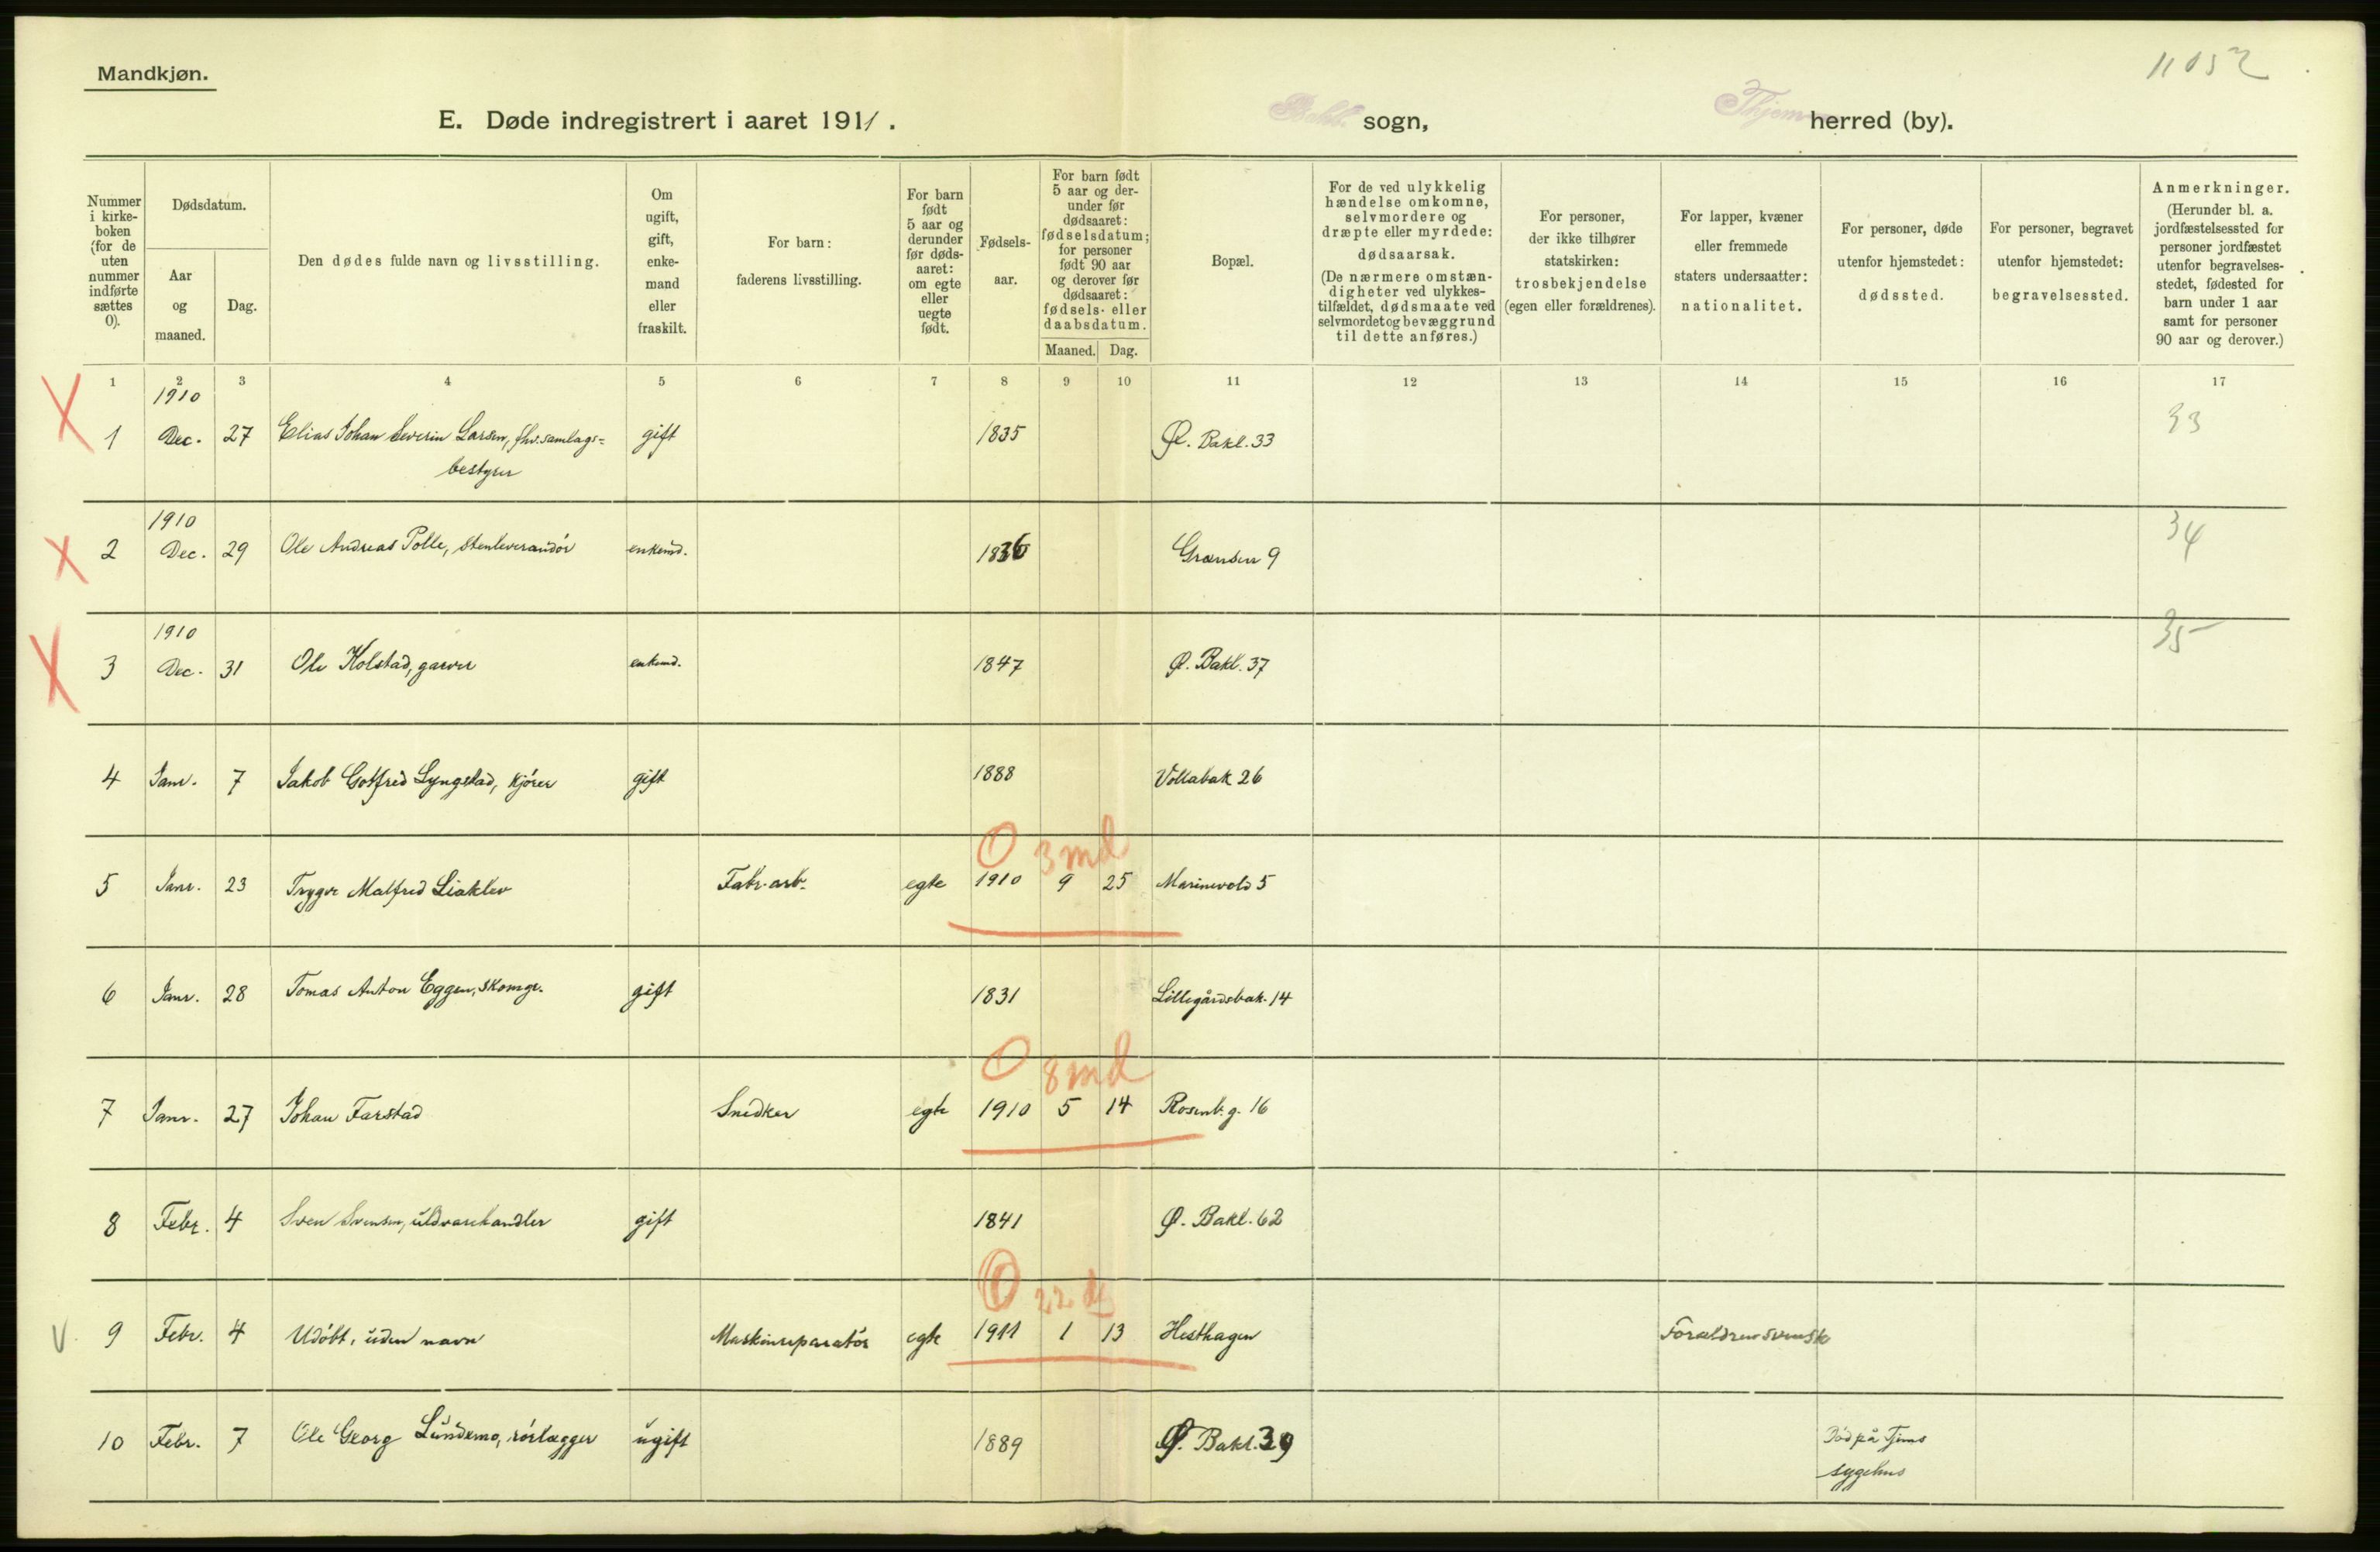 Mandkjøn.
11052
E. Døde indregistrert i aaret 1911. Bakl. sogn, Thjem herred (by).
Nummer i kirke-boken (for de uten nummer indførte sættes 0).
Dødsdatum.
Aar og maaned.
Dag.
Den dødes fulde navn og livsstilling.
Om ugift, gift, enke-mand eller fraskilt.
For barn: faderens livsstilling.
For barn født 5 aar og derunder før døds-aaret: om egte eller uegte født.
Fødsels-aar.
For barn født 5 aar og der-under før dødsaaret: fødselsdatum; for personer født 90 aar og derover før dødsaaret: fødsels- eller daabsdatum.
Maaned. Dag.
Bopæl.
For de ved ulykkelig hændelse omkomne, selvmordere og dræpte eller myrdede: dødsaarsak. (De nærmere omstæn-digheter ved ulykkes-tilfældet, dødsmaate ved selvmordet og bevæggrund til dette anføres.)
For personer, der ikke tilhører statskirken: trosbekjendelse (egen eller forældrenes).
For lapper, kvæner eller fremmede staters undersaatter: nationalitet.
For personer, døde utenfor hjemstedet: dødssted.
For personer, begravet utenfor hjemstedet: begravelsessted.
Anmerkninger. (Herunder bl. a. jordfæstelsessted for personer jordfæstet utenfor begravelses-stedet, fødested for barn under 1 aar samt for personer 90 aar og derover.)
1 2 3 4 5 6 7 8 9 10 11 12 13 14 15 16 17
1910
1 Dec. 27 Elias Johan Severin Larsen, fhv. samlags= gift 1835 Ø. Bakl. 33 33
bestyrer
1910
2 Dec. 29 Ole Andreas Polle, stenleverandör enkemd. 1836 Grænsen 9 34
1910
3 Dec. 31 Ole Kolstad, garver enkemd. 1847 Ø. Bakl. 37 35
4 Janr. 7 Jakob Gotfred Lyngstad, kjörer gift 1888 Vollabak 26
0 3 md
5 Janr. 23 Trygve Malfred Liaklev Fabr. arb. egte 1910 9 25 Marinevold 5
6 Janr. 28 Tomas Anton Eggen, skomgr. gift 1831 Lillegårdsbak. 14
0 8 md
7 Janr. 27 Johan Farstad Snedker egte 1910 5 14 Rosenb. g. 16
8 Febr. 4 Sven Svensen, uldvarehandler gift 1841 Ø. Bakl. 62
0 22 d
V. 9 Febr. 4 Udöbt, uden navn Maskinreparatör egte 1911 1 13 Hesthagen Forældrene svensk
10 Febr. 7 Ole Georg Lundemo, rörlægger ugift 1889 Ø. Bakl. 39 Död på Tjems
sygehus